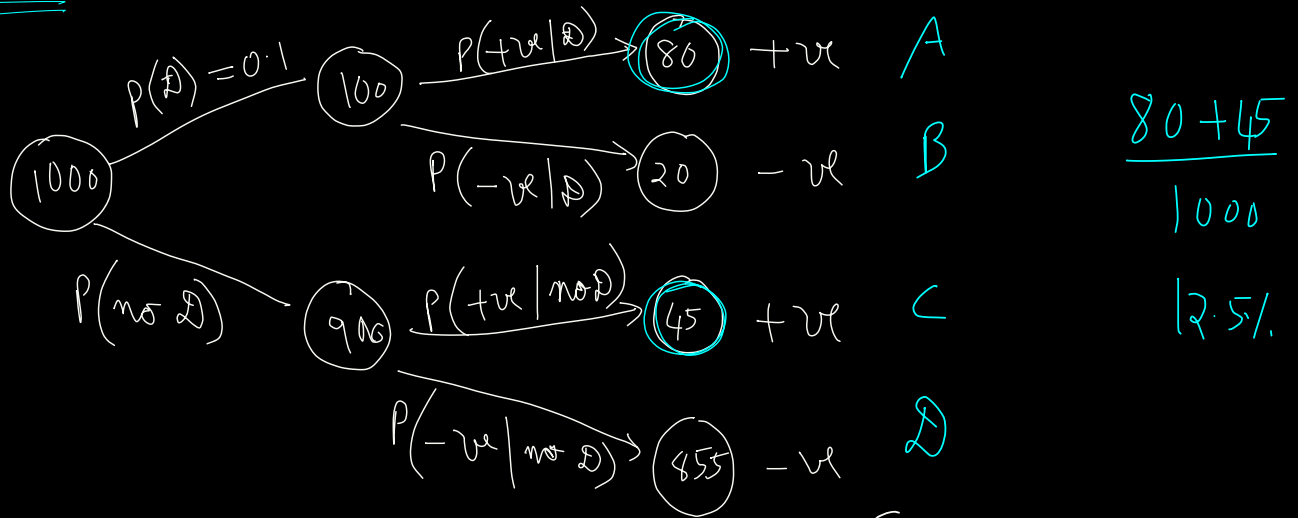 P(D) = 0.1
1000
100
P(+ve|D)
80 +ve A
P(-ve|D)
20 -ve B
P(no D)
900
P(+ve|no D)
45 +ve C
P(-ve|no D)
855 -ve D
80+45
1000
12.5%